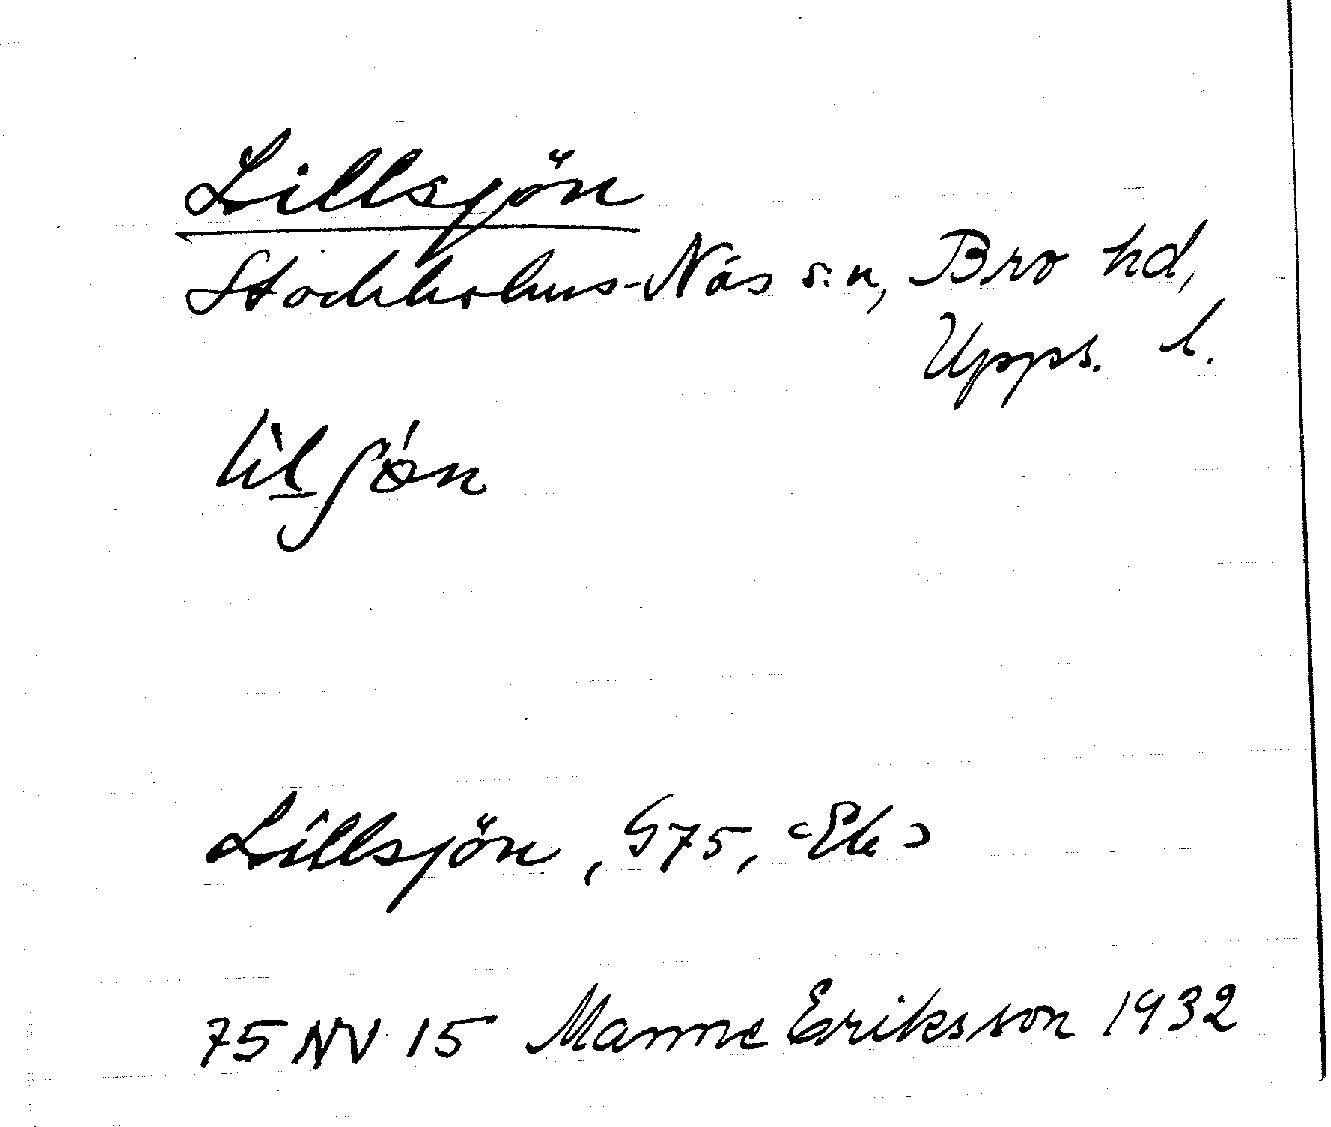 Lillsjön
Stockholms-Näs s:n, Bro hd,
Upps. l.
Lillsjön, G75, <Ek>
75 NV 15 Manne Eriksson 1932